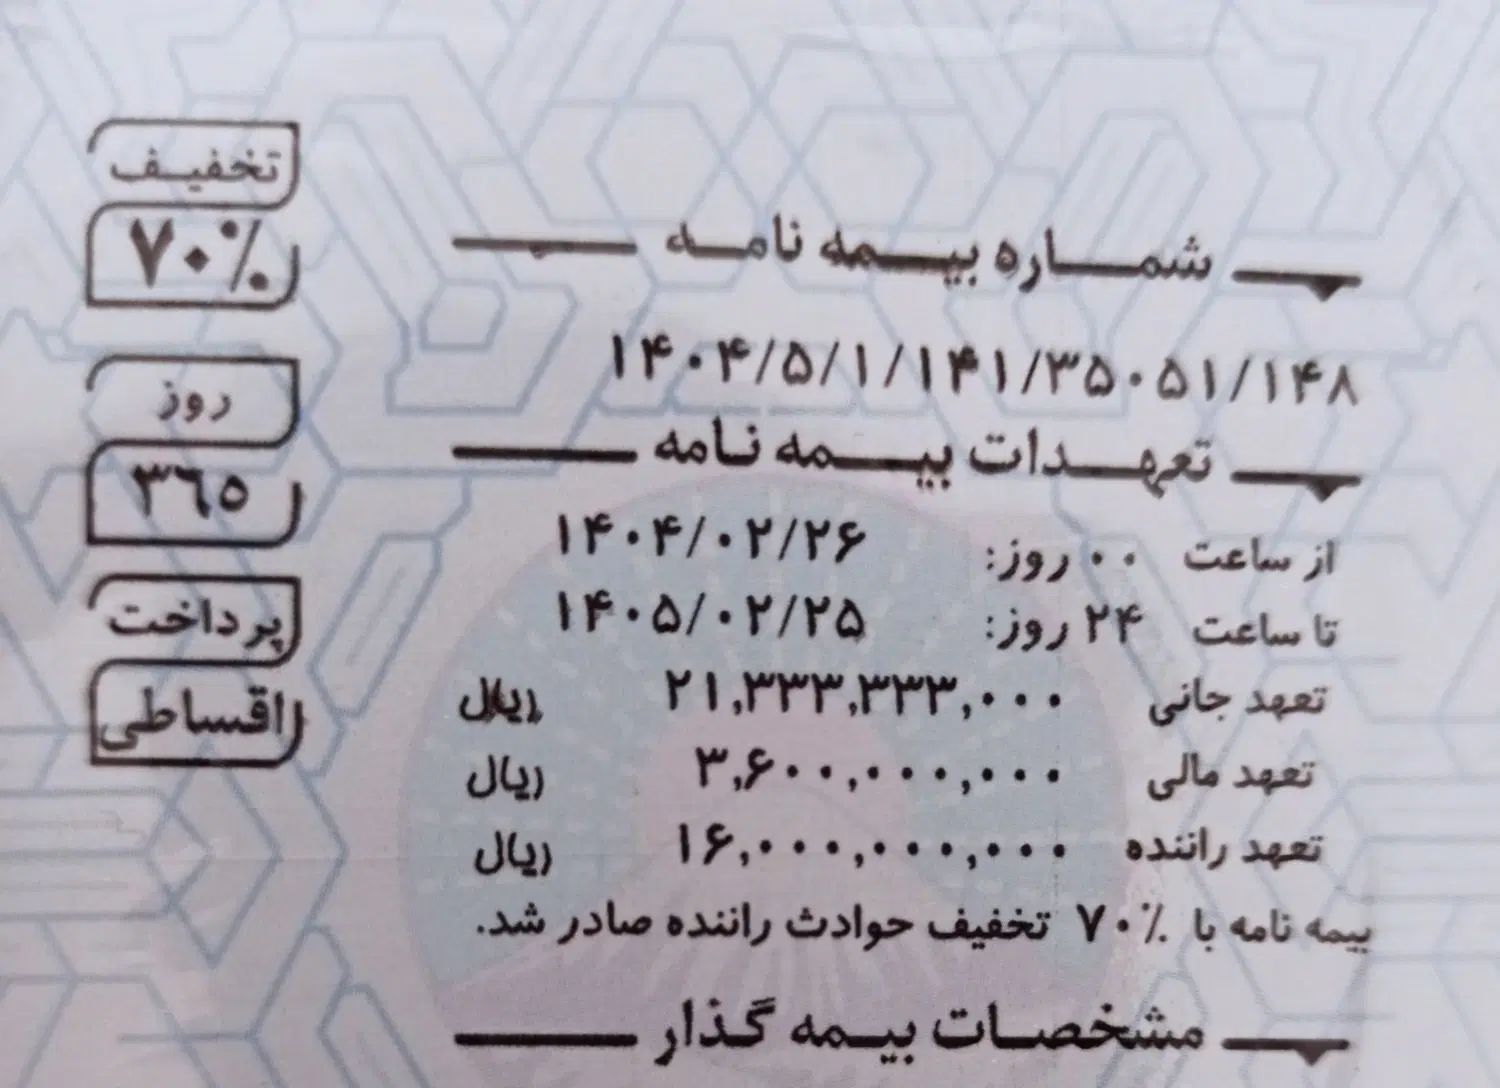 شماره بیمه نامه
۱۴۰۴/۵/۱/۱۴۱/۳۵۰۵۱/۱۴۸
تعهدات بیمه نامه
از ساعت ۰۰ روز: ۱۴۰۴/۰۲/۲۶
تا ساعت ۲۴ روز: ۱۴۰۵/۰۲/۲۵
تعهد جانی ۲۱,۳۳۳,۳۳۳,۰۰۰ ریال
تعهد مالی ۳,۶۰۰,۰۰۰,۰۰۰ ریال
تعهد راننده ۱۶,۰۰۰,۰۰۰,۰۰۰ ریال
بیمه نامه با ۷۰٪ تخفیف حوادث راننده صادر شد.
مشخصات بیمه گذار
تخفیف
۷۰٪
روز
۳۶۵
پرداخت
اقساطی